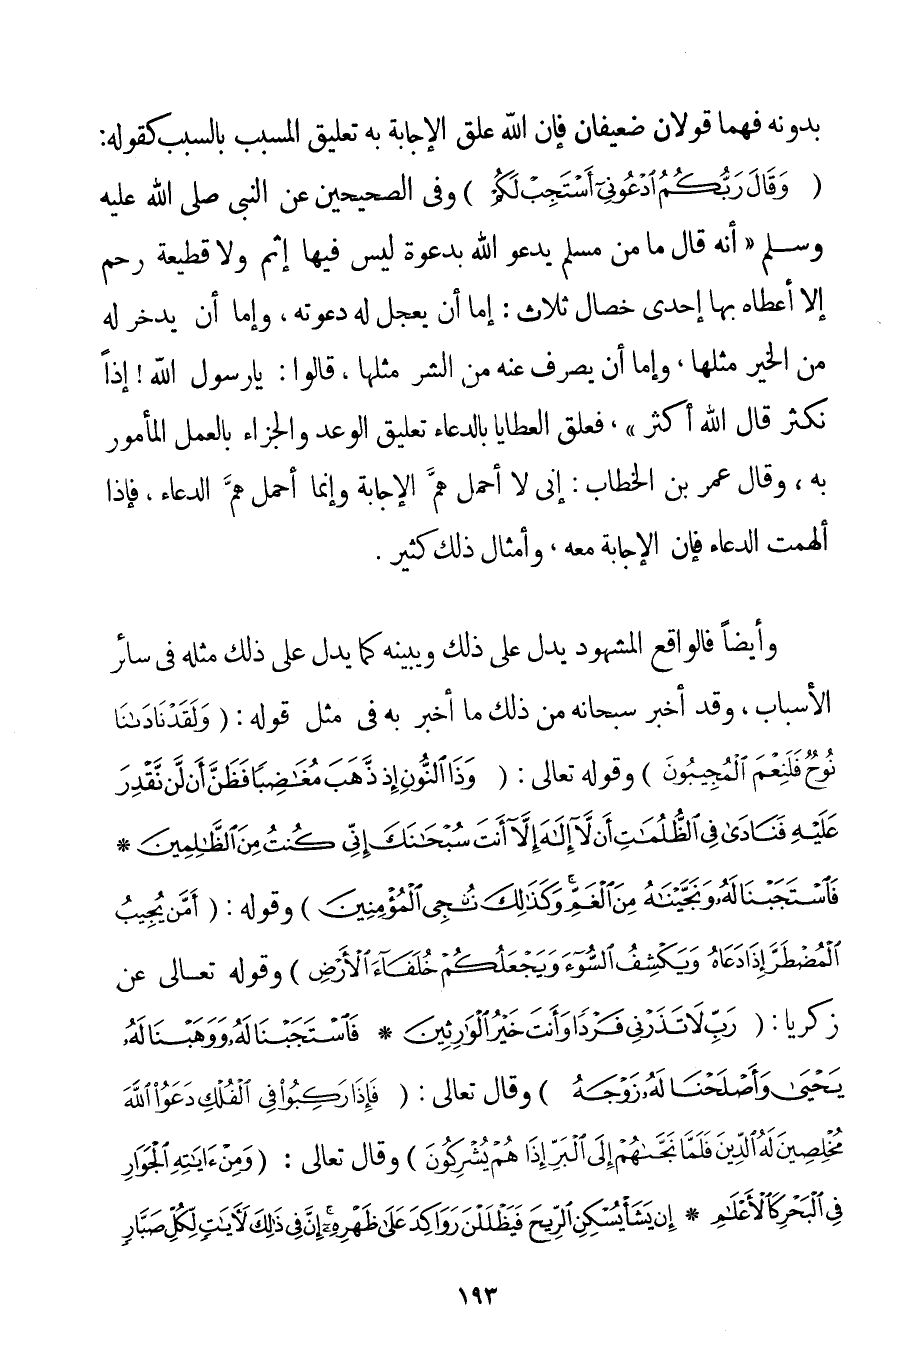 بدونه فهما قولان ضعيفان فإن الله علق الإجابة به تعليق المسبب بالسبب كقوله:
( وَقَالَ رَبُّكُمُ ٱدْعُونِىٓ أَسْتَجِبْ لَكُمْ ) وفى الصحيحين عن النبى صلى الله عليه
وسلم « أنه قال ما من مسلم يدعو الله بدعوة ليس فيها إثم ولا قطيعة رحم
إلا أعطاه بها إحدى خصال ثلاث : إما أن يعجل له دعوته ، وإما أن يدخر له
من الخير مثلها ، وإما أن يصرف عنه من الشر مثلها ، قالوا : يارسول الله ! إذاً
نكثر قال الله أكثر » ، فعلق العطايا بالدعاء تعليق الوعد والجزاء بالعمل المأمور
به ، وقال عمر بن الخطاب : إنى لا أحمل همَّ الإجابة وإنما أحمل همَّ الدعاء ، فإذا
ألهمت الدعاء فإن الإجابة معه ، وأمثال ذلك كثير .
وأيضاً فالواقع المشهود يدل على ذلك ويبينه كما يدل على ذلك مثله فى سائر
الأسباب ، وقد أخبر سبحانه من ذلك ما أخبر به فى مثل قوله : ( وَلَقَدْ نَادَىٰنَا
نُوحٌ فَلَنِعْمَ ٱلْمُجِيبُونَ ) وقوله تعالى : ( وَذَا ٱلنُّونِ إِذ ذَّهَبَ مُغَٰضِبًا فَظَنَّ أَن لَّن نَّقْدِرَ
عَلَيْهِ فَنَادَىٰ فِى ٱلظُّلُمَٰتِ أَن لَّآ إِلَٰهَ إِلَّآ أَنتَ سُبْحَٰنَكَ إِنِّى كُنتُ مِنَ ٱلظَّٰلِمِينَ *
فَٱسْتَجَبْنَا لَهُۥ وَنَجَّيْنَٰهُ مِنَ ٱلْغَمِّ ۚ وَكَذَٰلِكَ نُۨجِى ٱلْمُؤْمِنِينَ ) وقوله : ( أَمَّن يُجِيبُ
ٱلْمُضْطَرَّ إِذَا دَعَاهُ وَيَكْشِفُ ٱلسُّوٓءَ وَيَجْعَلُكُمْ خُلَفَآءَ ٱلْأَرْضِ ) وقوله تعالى عن
زكريا : ( رَبِّ لَا تَذَرْنِى فَرْدًا وَأَنتَ خَيْرُ ٱلْوَٰرِثِينَ * فَٱسْتَجَبْنَا لَهُۥ وَوَهَبْنَا لَهُۥ
يَحْيَىٰ وَأَصْلَحْنَا لَهُۥ زَوْجَهُۥٓ ) وقال تعالى : ( فَإِذَا رَكِبُوا۟ فِى ٱلْفُلْكِ دَعَوُا۟ ٱللَّهَ
مُخْلِصِينَ لَهُ ٱلدِّينَ فَلَمَّا نَجَّىٰهُمْ إِلَى ٱلْبَرِّ إِذَا هُمْ يُشْرِكُونَ ) وقال تعالى : ( وَمِنْ ءَايَٰتِهِ ٱلْجَوَارِ
فِى ٱلْبَحْرِ كَٱلْأَعْلَٰمِ * إِن يَشَأْ يُسْكِنِ ٱلرِّيحَ فَيَظْلَلْنَ رَوَاكِدَ عَلَىٰ ظَهْرِهِۦٓ ۚ إِنَّ فِى ذَٰلِكَ لَءَايَٰتٍ لِّكُلِّ صَبَّارٍ
١٩٣